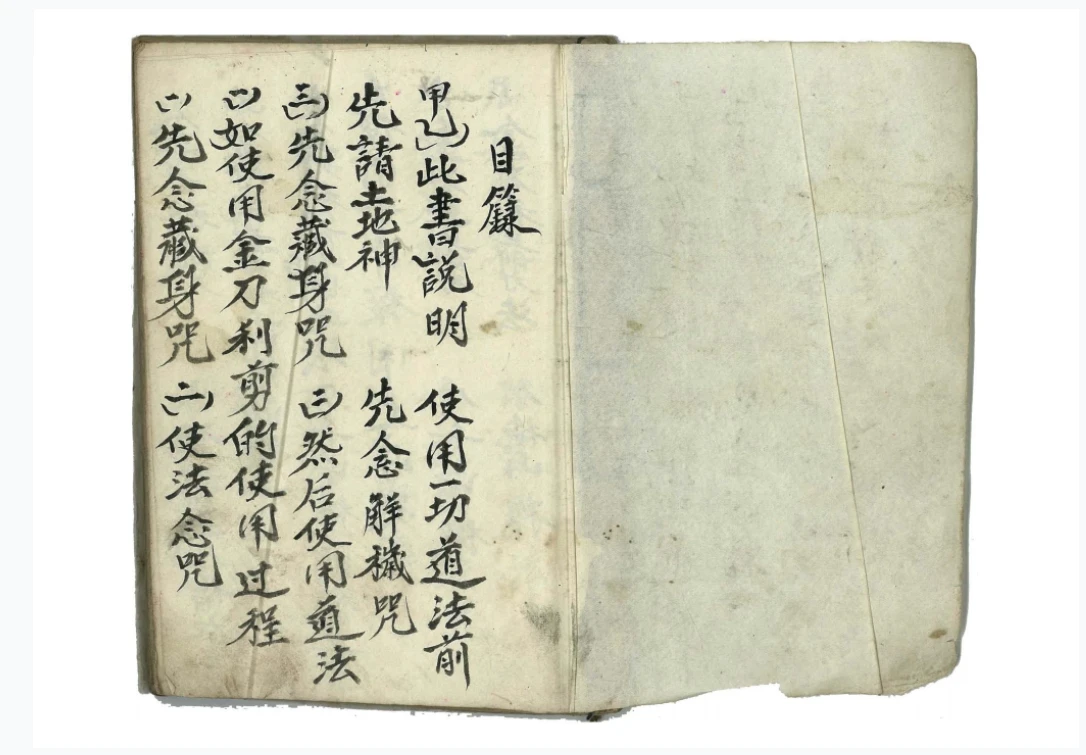 目籙
甲乙)此書説明 使用一切道法前
先請土地神 先念解穢咒
(三)先念藏身咒 (二)然后使用道法
(一)如使用金刀利剪的使用过程
(一)先念藏身咒 (二)使法念咒